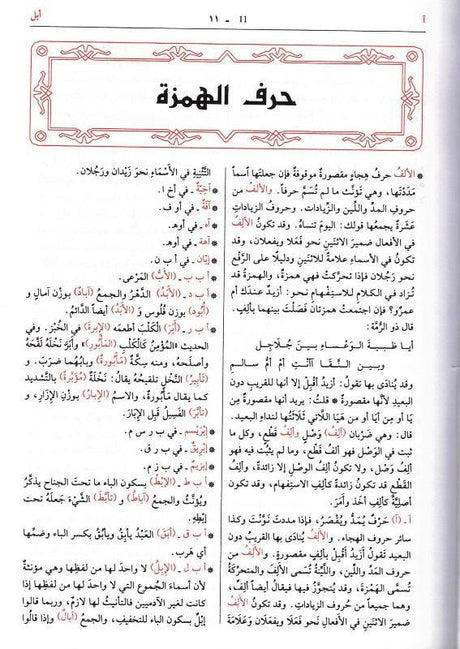 أبل
11 - ١١
أ
حرف الهمزة
* الألفُ حرفُ هِجاءٍ مقصورةٌ موقوفةٌ فإن جعلتَها اسماً
مَدَدْتَها، وهي تؤنَّث ما لم تُسَمَّ حرفاً. والألفُ من
حروفِ المدِّ واللِّين والزِّيادات. وحروفُ الزِّياداتِ
عَشَرةٌ يجمعُها قولك: اليومَ تنساهُ. وقد تكونُ الألفُ
في الأفعالِ ضميرَ الاثنَيْنِ نحو فَعَلا ويفعلان، وقد
تكونُ في الأسماءِ علامةً للاثنَينِ ودليلاً على الرَّفْع
نحو رَجُلان فإذا تحرَّكتْ فهي همزةٌ، والهمزةُ قد
تُزاد في الكلامِ للاستِفْهامِ نحو: أزيدٌ عندَكَ أم
عمرٌو؟ فإن اجتمعتْ همزتانِ فَصَلْتَ بينهما بألِفٍ.
قال ذو الرُّمَّة:
أيا ظَبيةَ الوَعْساءِ بينَ جُلاجِلٍ
وبينَ النَّقا آأنتِ أمْ أمُّ سالمِ
وقد يُنادَى بها تقولُ: أزيدُ أقْبِلْ إلا أنها للقريبِ دون
البعيدِ لأنها مقصورةٌ * قلتُ: يريد أنها مقصورةٌ مِن
يَا أو مِن أيَا أو من هَيَا اللاتي ثلاثَتُها لنداءِ البعيد.
قال: وهي ضَرْبان ألِفُ وَصْلٍ وألِفُ قَطْعٍ، وكل ما
ثبت في الوَصْلِ فهو ألفُ قَطْعٍ، وما لم يثبُت فيه فهو
ألفُ وَصْلٍ، ولا تكونُ ألفُ الوصْلِ إلا زائدةً، وألفُ
القَطْعِ قد تكونُ زائدةً كألفِ الاستفهامِ، وقد تكون
أصليَّةً كألفِ أخَذ وأمَرَ.
* أ - (آ) حَرْفٌ يُمَدُّ ويُقْصَرُ، فإذا مددتَ نوَّنتَ وكذا
سائر حروفِ الهِجاء. والألفُ يُنادَى بها القريبُ دون
البعيد تقولُ أزيدُ أقْبِل بألِفٍ مقصورةٍ. والألفُ من
حروفِ المَدِّ واللِّينِ، واللَّيِّنةُ تُسمَّى الألفَ والمتحرِّكةُ
تُسمَّى الهَمْزةَ، وقد يُتجوَّزُ فيها فيقالُ أيضاً ألِفٌ،
وهما جميعاً من حُروفِ الزِّيادات. وقد تكونُ الألفُ
ضميرَ الاثنين في الأفعالِ نحو فَعَلا ويفعَلانِ وعَلامةَ
التَّثنِيَةِ في الأسْماءِ نحوَ زَيْدانِ ورَجُلان.
* آخِيَّةٌ - في أ خ ا.
* آفَةٌ - في أ و ف.
* آه - في أوهـ.
* آهة - في أوهـ.
* إبّان - في أ ب ن.
* أ ب ب - (الأبُّ) المَرْعى.
* أ ب د - (الأَبَدُ) الدَّهْرُ والجمعُ (آبادٌ) بوزْنِ آمالٍ و
(أُبُود) بوزنِ فُلُوس و (الأَبَدُ) أيضاً الدَّائمُ.
* أ ب ر - (أبَرَ) الكَلْبَ أطعمَه (الإبرةَ) في الخُبْز. وفي
الحديث «المُؤْمِنُ كالكَلْبِ (المأبُورِ)» وأبَرَ نَخْلَه لَقَّحَهُ
وأصلَحَهُ، ومنه سِكَّةٌ (مأبُورَةٌ) وبابُهُما ضَرَبَ. و
(تأبيرُ) النَّخْلِ تلقيحُهُ يقالُ: نَخْلَةٌ (مُؤَبَّرةٌ) بالتَّشديدِ
كما يقال مَأْبُورةٌ، والاسمُ (الإبَارُ) بوَزْنِ الإزارِ، و
(تأبَّرَ) الفَسِيلُ قَبِلَ الإبَارَ.
* إبْرَيْسم - في ب ر س م.
* إبْرِيقٌ - في ب ر ق.
* إبزيمٌ - في ب ز م.
* أ ب ط - (الإبْطُ) بسكون الباءِ ما تحت الجناح يذكَّرُ
ويُؤنَّثُ والجمعُ (آباطٌ) و (تأبَّطَ) الشَّيْءَ جعلَهُ تحتَ
إبْطِهِ.
* أ ب ق - (أبَقَ) العَبْدُ يأبِق ويأبُق بكسرِ الباءِ وضمِّها
أي هَرب.
* أ ب ل - (الإبِلُ) لا واحدَ لها من لفظِها وهي مؤنثةٌ
لأن أسماءَ الجُموعِ التي لا واحدَ لها من لفظِها إذا
كانت لغيرِ الآدميين فالتأنيثُ لها لازمٌ، وربما قالوا
إبْلٌ بسكونِ الباءِ للتخفيفِ، والجمعُ (آبالٌ) وإذا قالُوا